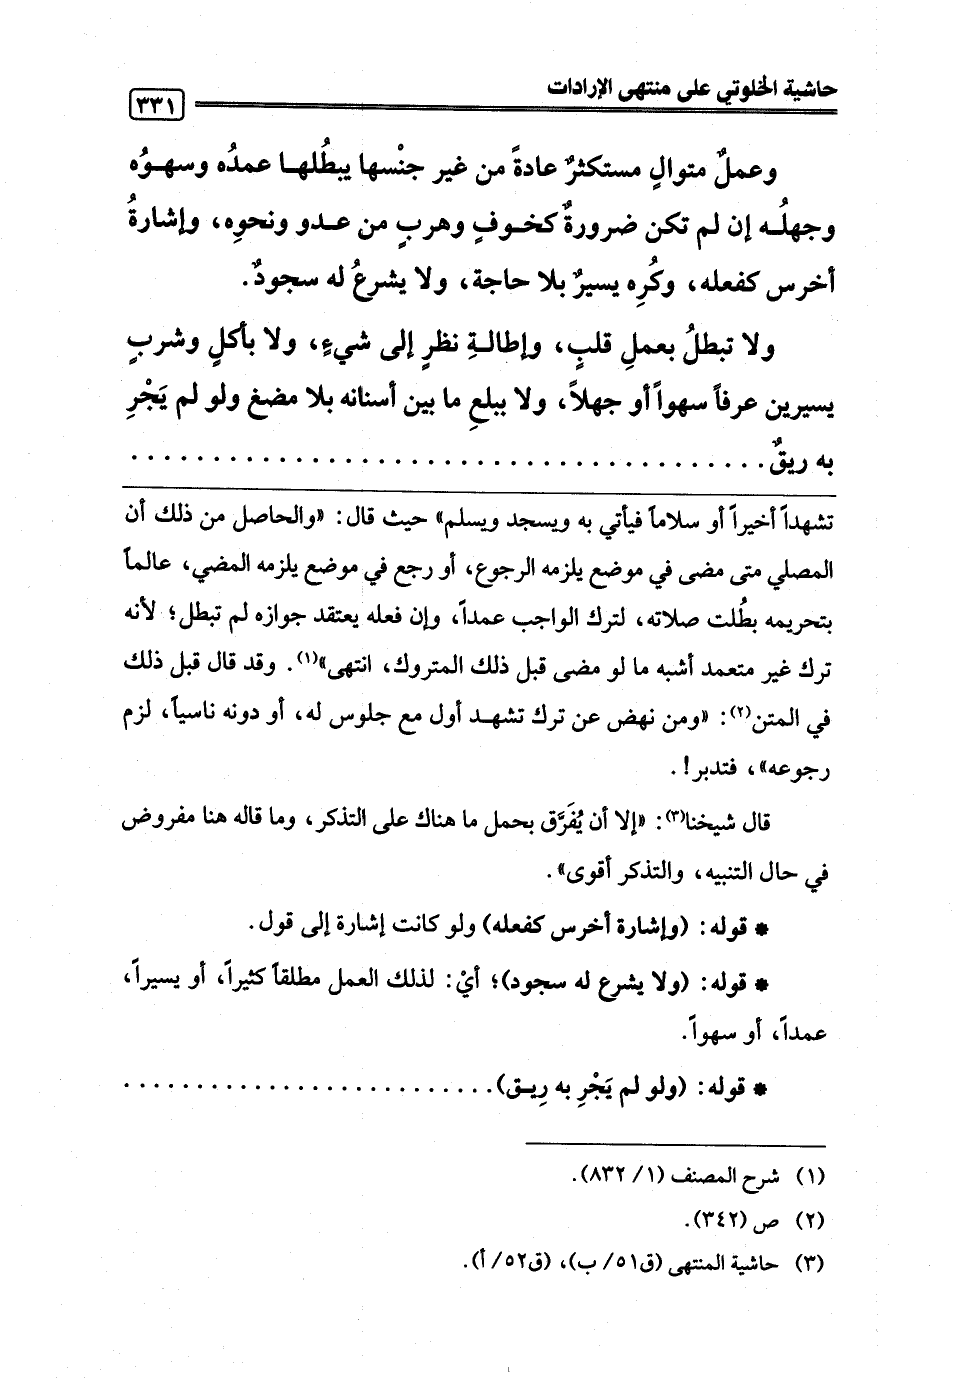 حاشية الخلوتي على منتهى الإرادات
٣٣١
وعملٌ متوالٍ مستكثرٌ عادةً من غير جنْسها يبطُلها عمدُه وسهوُه
وجهلُه إن لم تكن ضرورةٌ كخوفٍ وهربٍ من عدو ونحوِه، وإشارةُ
أخرس كفعله، وكُرِه يسيرٌ بلا حاجة، ولا يشرعُ له سجودٌ.
ولا تبطلُ بعملِ قلبٍ، وإطالةِ نظرٍ إلى شيءٍ، ولا بأكلٍ وشربٍ
يسيرين عرفاً سهواً أو جهلاً، ولا ببلعِ ما بين أسنانه بلا مضغ ولو لم يَجْرِ
به ريقٌ. . . . . . . . . . . . . . . . . . . . . . . . . . . . . . . . . . . . . . .
تشهداً أخيراً أو سلاماً فيأتي به ويسجد ويسلم» حيث قال: «والحاصل من ذلك أن
المصلي متى مضى في موضع يلزمه الرجوع، أو رجع في موضع يلزمه المضي، عالماً
بتحريمه بطُلت صلاته، لترك الواجب عمداً، وإن فعله يعتقد جوازه لم تبطل؛ لأنه
ترك غير متعمد أشبه ما لو مضى قبل ذلك المتروك، انتهى»(١). وقد قال قبل ذلك
في المتن(٢): «ومن نهض عن ترك تشهد أول مع جلوس له، أو دونه ناسياً، لزم
رجوعه»، فتدبر!.
قال شيخنا(٣): «إلا أن يُفَرَّق بحمل ما هناك على التذكر، وما قاله هنا مفروض
في حال التنبيه، والتذكر أقوى».
* قوله: (وإشارة أخرس كفعله) ولو كانت إشارة إلى قول.
* قوله: (ولا يشرع له سجود)؛ أيْ: لذلك العمل مطلقاً كثيراً، أو يسيراً،
عمداً، أو سهواً.
* قوله: (ولو لم يَجْرِ به رِيق). . . . . . . . . . . . . . . . . . . . . . . . . .
(١) شرح المصنف (١/ ٨٣٢).
(٢) ص (٣٤٢).
(٣) حاشية المنتهى (ق٥١/ ب)، (ق٥٢/ أ).